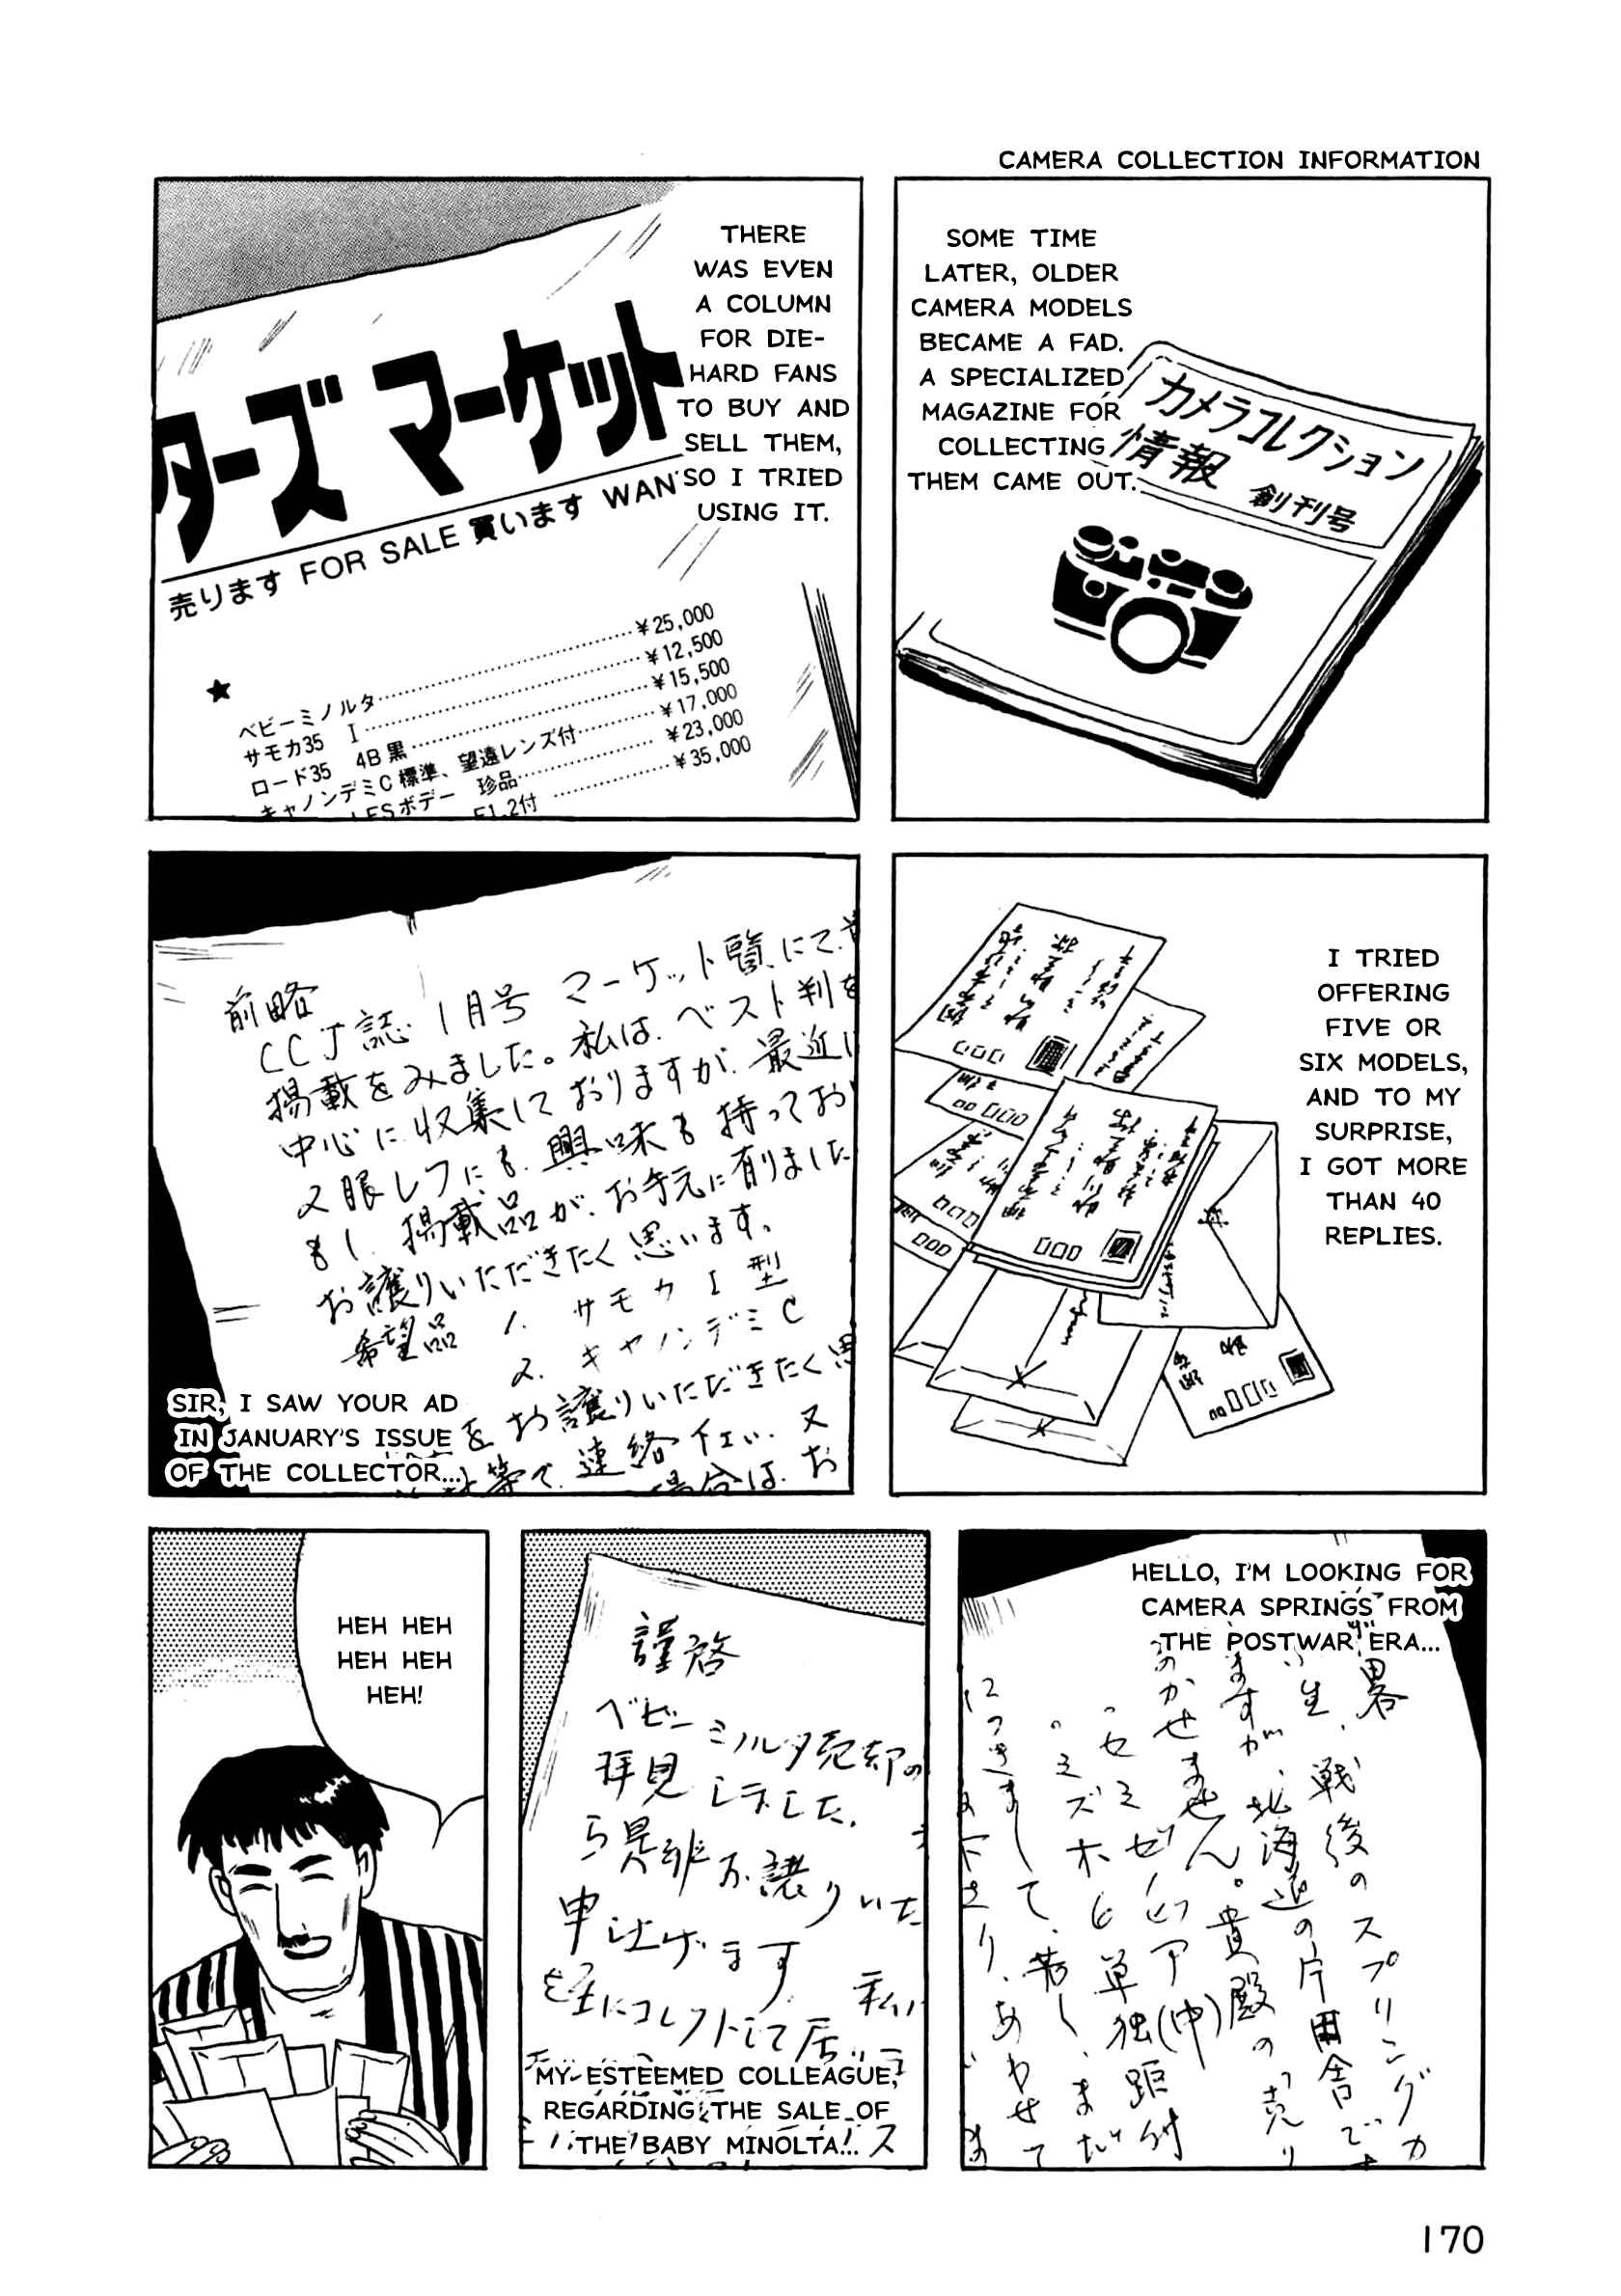 CAMERA COLLECTION INFORMATION
SOME TIME
LATER, OLDER
CAMERA MODELS
BECAME A FAD.
A SPECIALIZED
MAGAZINE FOR
COLLECTING
THEM CAME OUT.
カメラコレクション
情報 創刊号
THERE
WAS EVEN
A COLUMN
FOR DIE-
HARD FANS
TO BUY AND
SELL THEM,
SO I TRIED
USING IT.
ターズ マーケット
売ります FOR SALE 買います WAN
★
ベビーミノルタ……¥25,000
サモカ35 I……¥12,500
ロード35 4B黒……¥15,500
キャノンデミC標準、望遠レンズ付……¥17,000
ボデー 珍品……¥23,000
F1.2付……¥35,000
I TRIED
OFFERING
FIVE OR
SIX MODELS,
AND TO MY
SURPRISE,
I GOT MORE
THAN 40
REPLIES.
前略
CCJ誌 1月号 マーケット覧にて
掲載をみました。私は、ベスト判を
中心に収集しておりますが、最近
2眼レフにも、興味も持ってお
もし、掲載品が、お手元に有りました
お譲りいただきたく思います。
希望品 1. サモカ I 型
2. キャノンデミC
をお譲りいただきたく思
等で、連絡下さい。又
場合は、お
SIR, I SAW YOUR AD
IN JANUARY'S ISSUE
OF THE COLLECTOR...
HELLO, I'M LOOKING FOR
CAMERA SPRINGS FROM
THE POSTWAR ERA...
略
戦後のスプリングカ
生、北海道の片田舎で
ますが、
のかせません。貴殿の「売り
セミゼノビア
ミズホ 単独(中)距付
につきまして、若し、まだ
下さり、あわせて
謹啓
ベビーミノルタ売却の
拝見しました。
ら是非お譲りいた
申し上げます 私
を主にコレクトして居
MY ESTEEMED COLLEAGUE,
REGARDING THE SALE OF
THE BABY MINOLTA...
HEH HEH
HEH HEH
HEH!
170